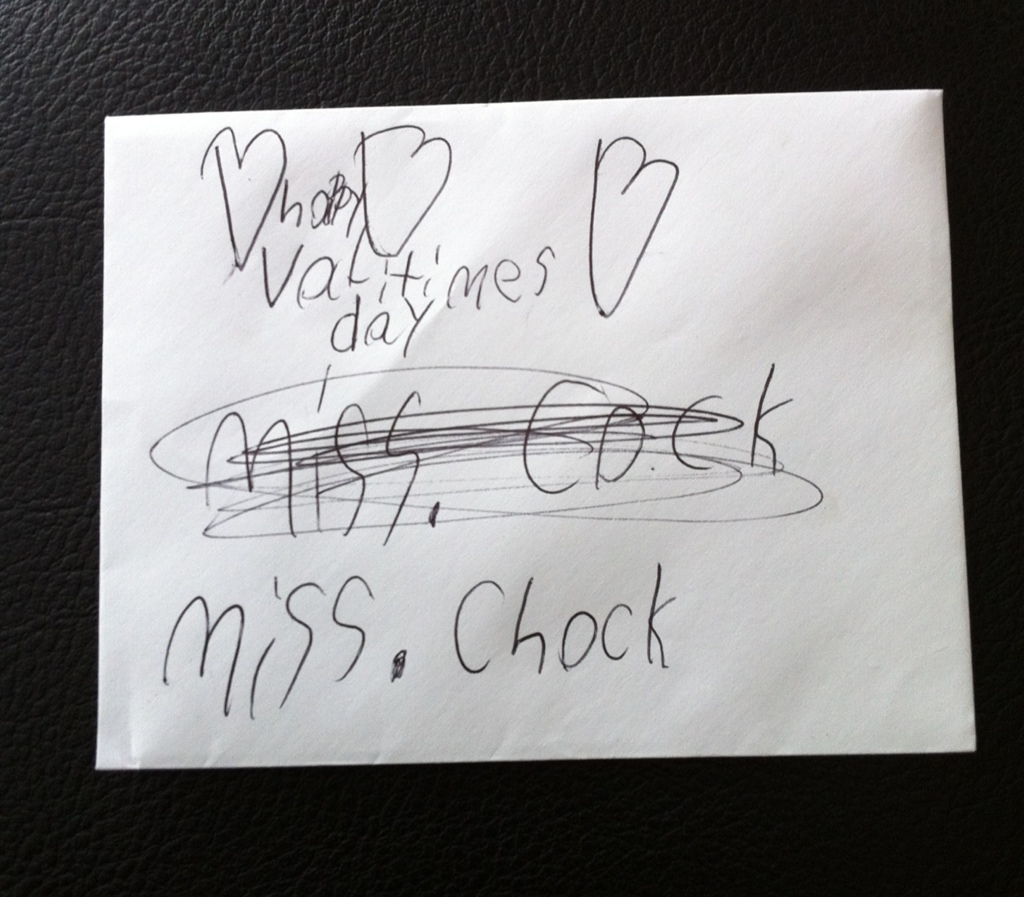 happy
Valitimes
day
Miss. Cock
Miss. Chock